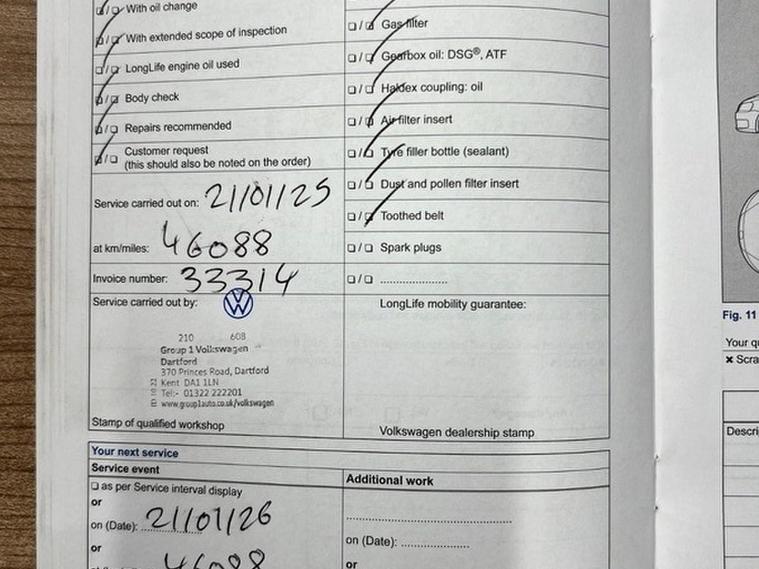 With oil change
With extended scope of inspection
LongLife engine oil used
Body check
Repairs recommended
Customer request
(this should also be noted on the order)
Service carried out on: 21/01/25
at km/miles: 46088
Invoice number: 33314
Service carried out by:
210 608
Group 1 Volkswagen
Dartford
370 Princes Road, Dartford
Kent DA1 1LN
Tel:- 01322 222201
www.group1auto.co.uk/volkswagen
Stamp of qualified workshop
Gas filter
Gearbox oil: DSG®, ATF
Haldex coupling: oil
Air filter insert
Tyre filler bottle (sealant)
Dust and pollen filter insert
Toothed belt
Spark plugs
....................
LongLife mobility guarantee:
Volkswagen dealership stamp
Your next service
Service event
as per Service interval display
or
on (Date): 21/01/26
or
46088
Additional work
on (Date): ....................
or
Fig. 11
Your
Scra
Descri